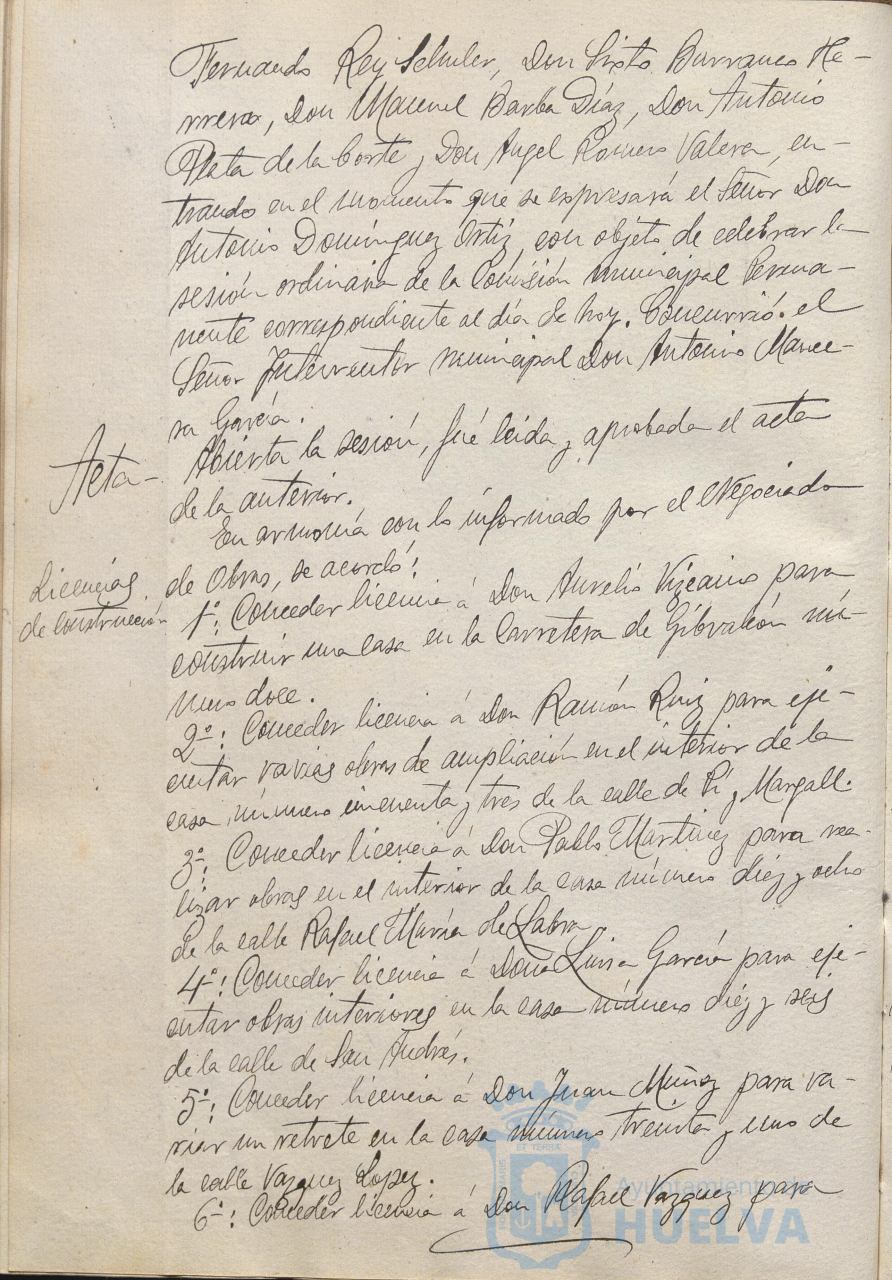 Fernando Rey Schuler, Don Sixto Burranco He-
rrera, Don Manuel Barba Díaz, Don Antonio
Plata de la Corte y Don Angel Romero Valera, en-
trando en el momento que se expresará el Señor Don
Antonio Domínguez Ortiz, con objeto de celebrar la
sesión ordinaria de la Comisión municipal Perma-
nente correspondiente al día de hoy. Concurrió el
Señor Interventor municipal Don Antonio
García.
Acta- Abierta la sesión, fué leida y aprobada el acta
de la anterior.
En armonía con lo informado por el Negociado
de Obras, se acordó:
Licencias
de construcción
1º: Conceder licencia á Don Aurelio Vizcaino para
construir una casa en la Carretera de Gibraleón nú-
mero doce.
2º: Conceder licencia á Don Ramón Ruiz para eje-
cutar varias obras de ampliación en el interior de la
casa número cincuenta y tres de la calle de Pí y Margall.
3º: Conceder licencia á Don Pablo Martinez para rea-
lizar obras en el interior de la casa número diéz y ocho
de la calle Rafael María de Labra.
4º: Conceder licencia á Doña Luisa García para eje-
cutar obras interiores en la casa número diéz y seis
de la calle de San Andrés.
5º: Conceder licencia á Don Juan Muñoz para va-
riar un retrete en la casa número treinta y uno de
la calle Vazquez Lopez.
6º: Conceder licencia á Don Rafael Vazquez para
Ayuntamiento
HUELVA